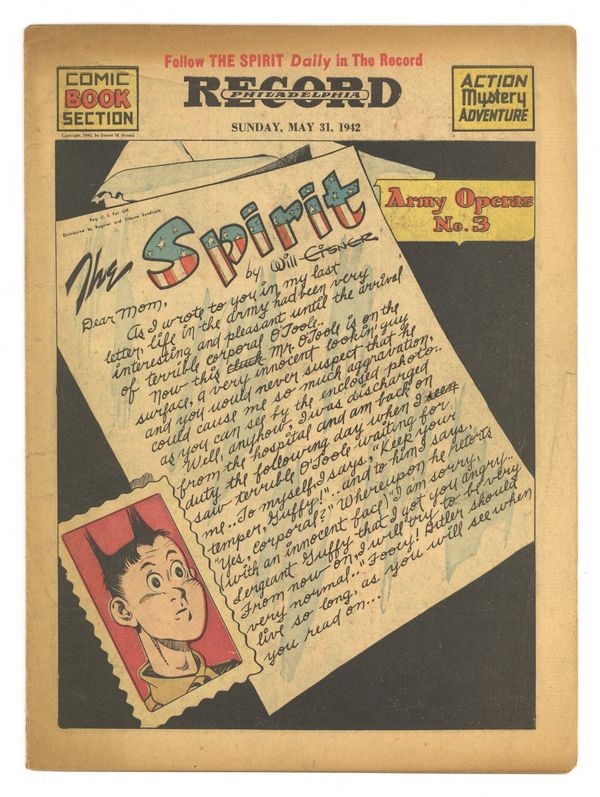 Follow THE SPIRIT Daily in The Record
COMIC
BOOK
SECTION
RECORD
PHILADELPHIA
ACTION
Mystery
ADVENTURE
Copyright, 1942, by Everett M. Arnold
SUNDAY, MAY 31, 1942
Reg. U. S. Pat. Off.
Distributed by Register and Tribune Syndicate
The Spirit
by Will Eisner
Army Operas
No. 3
Dear Mom,
As I wrote to you in my last
letter, life in the army had been very
interesting and pleasant until the arrival
of terrible corporal O'Toole..
Now this Mr. O'Toole is on the
surface, a very innocent lookin' guy
and you would never suspect that he
could cause me so much aggravation,
as you can see by the enclosed photo..
Well, anyhow, I was discharged
from the hospital and am back on
duty the following day when I seen
saw terrible O'Toole waiting for
me.. To myself, I says, "Keep your
temper, Guffy!".. and to him I says,
"Yes, corporal?" Whereupon he retorts
with an innocent face) "I am sorry,
Sergeant Guffy that I got you angry..
From now on, I will try to be very
very normal.." Fooey! Hitler should
live so long, as you will see when
you read on...